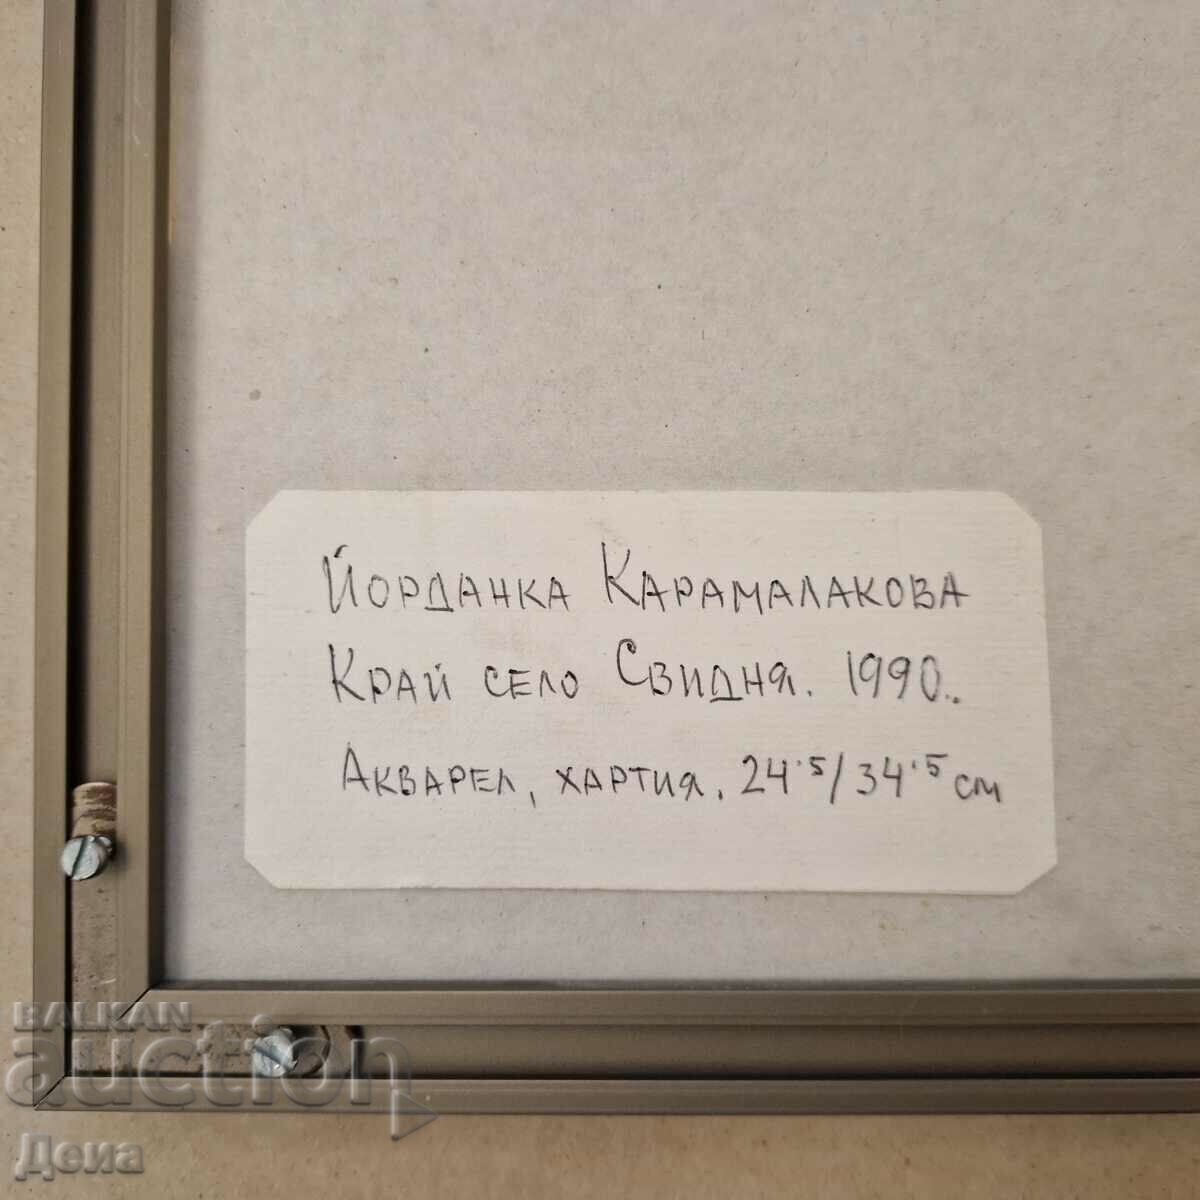 Йорданка Карамалакова
Край село Свидня. 1990..
Акварел, хартия. 24.5/34.5 см
BALKAN
auction
Деиа